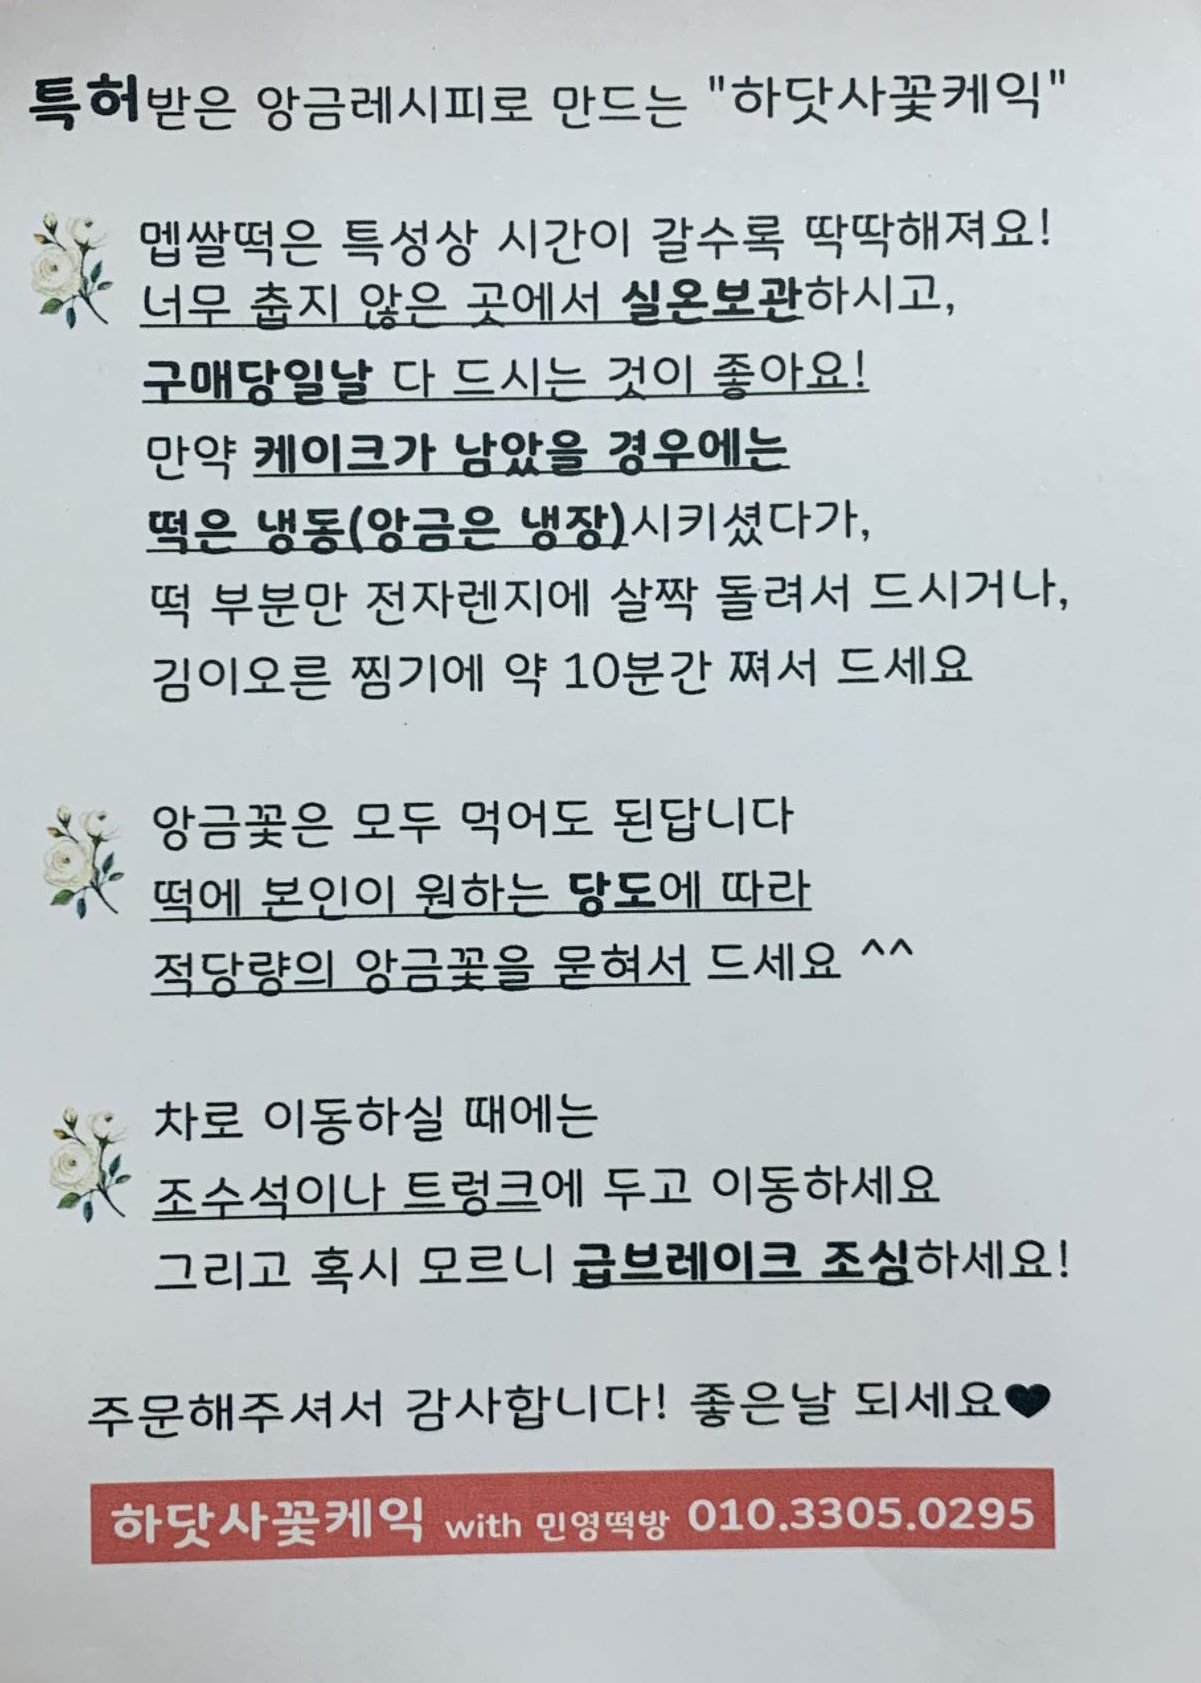 특허받은 앙금레시피로 만드는 "하닷사꽃케익"
멥쌀떡은 특성상 시간이 갈수록 딱딱해져요!
너무 춥지 않은 곳에서 실온보관하시고,
구매당일날 다 드시는 것이 좋아요!
만약 케이크가 남았을 경우에는
떡은 냉동(앙금은 냉장)시키셨다가,
떡 부분만 전자렌지에 살짝 돌려서 드시거나,
김이오른 찜기에 약 10분간 쪄서 드세요
앙금꽃은 모두 먹어도 된답니다
떡에 본인이 원하는 당도에 따라
적당량의 앙금꽃을 묻혀서 드세요 ^^
차로 이동하실 때에는
조수석이나 트렁크에 두고 이동하세요
그리고 혹시 모르니 급브레이크 조심하세요!
주문해주셔서 감사합니다! 좋은날 되세요♥
하닷사꽃케익 with 민영떡방 010.3305.0295